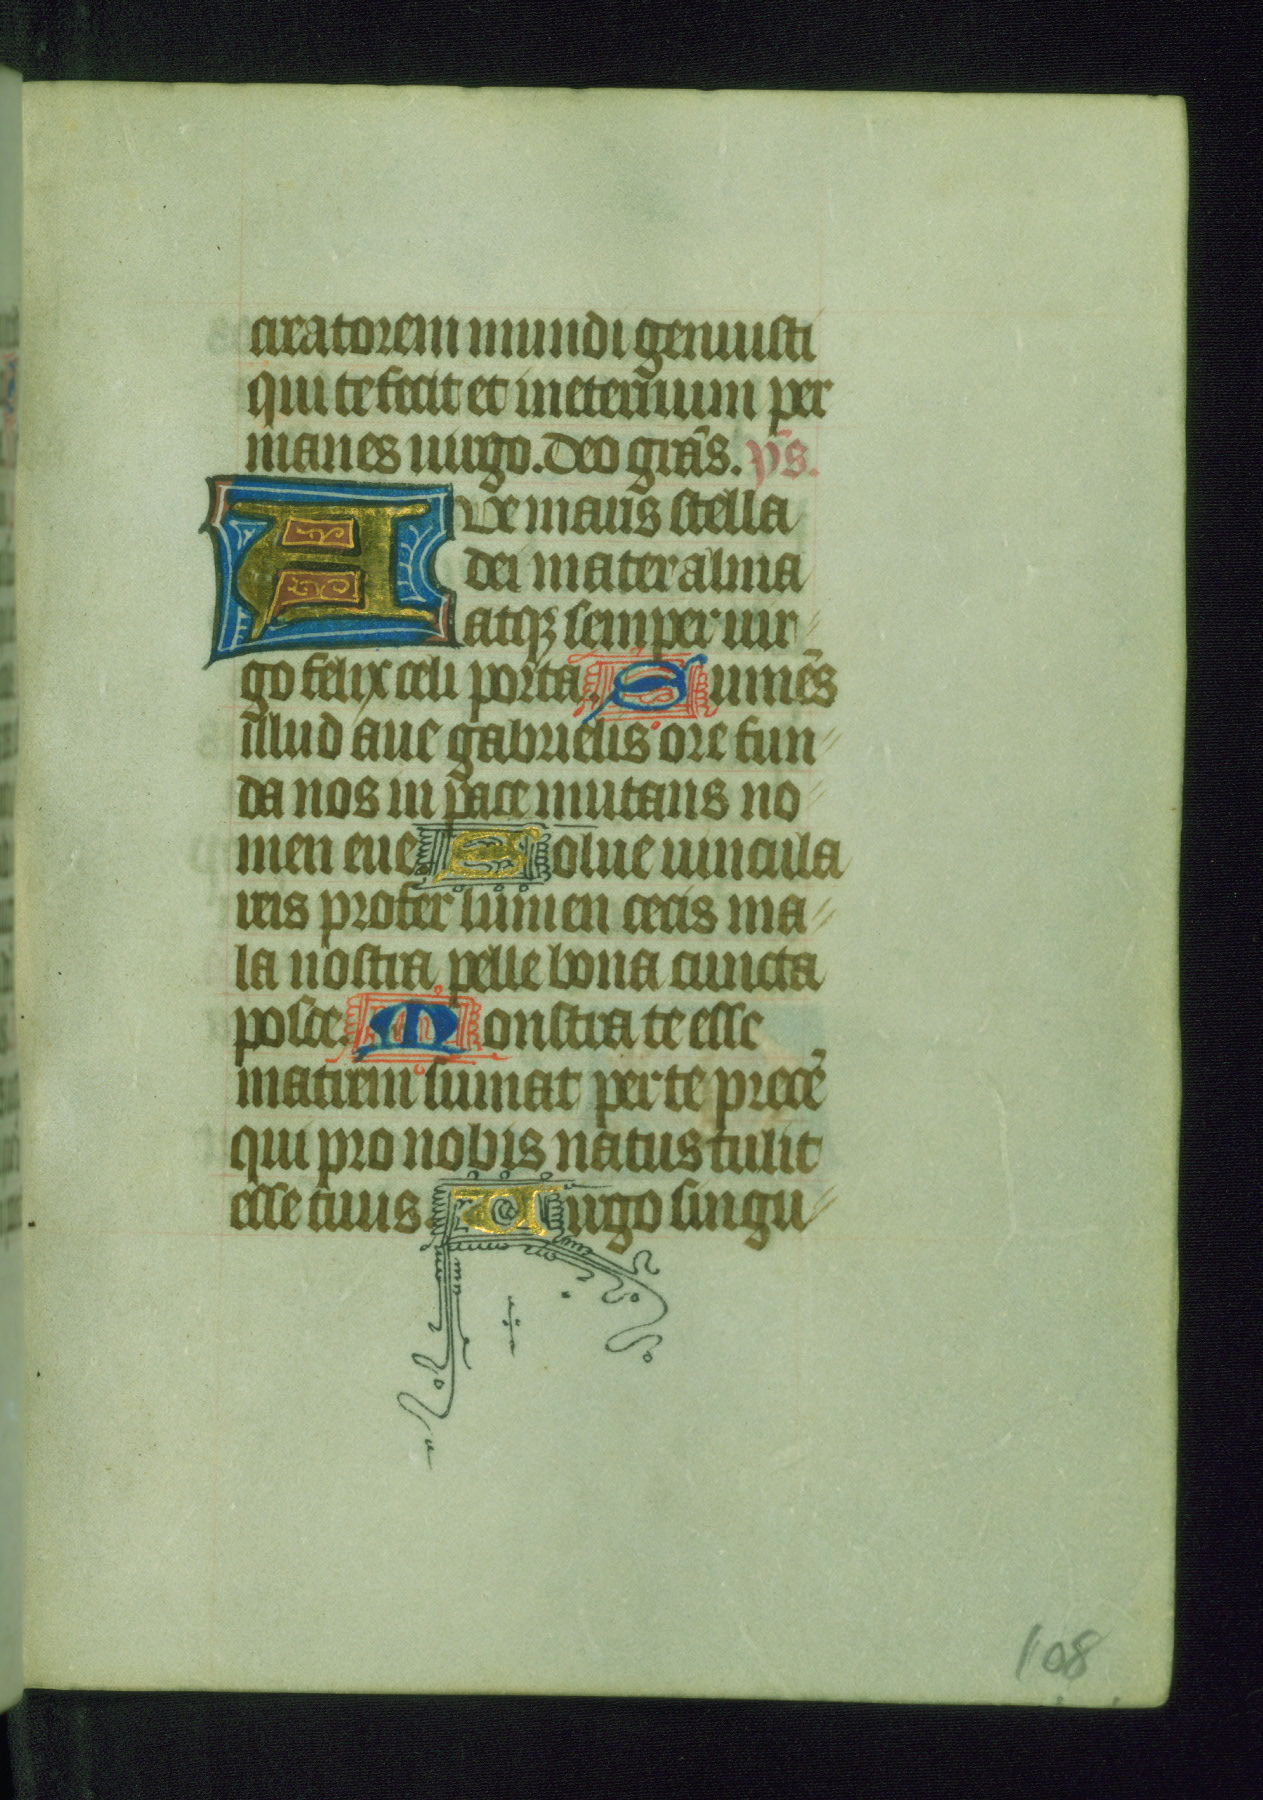 creatorem mundi genuisti
qui te fecit et in eternum per
manes uirgo. Deo grās. ẏs̄.
Aue maris stella
dei mater alma
atqꝫ semper uir
go felix celi porta. Sumēs
illud aue gabrielis ore fun
da nos in pace mutans no
men eue. Solue uincula
reis profer lumen cecis ma
la nostra pelle bona cuncta
posce. Monstra te esse
matrem sumat per te precē
qui pro nobis natus tulit
esse tuus. Uirgo singu
108